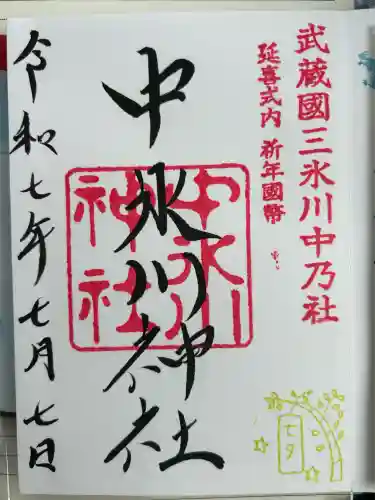 武蔵國三氷川中乃社
延喜式内 祈年國幣
中氷川神社
中氷川
神社
令和七年七月七日
七夕